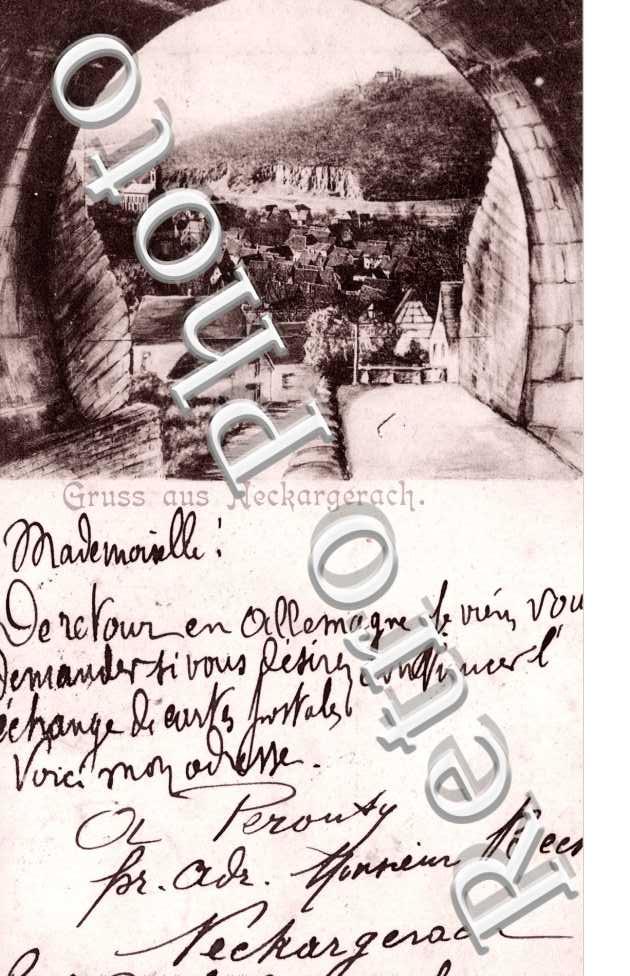 Gruss aus Neckargerach.
Mademoiselle!
De retour en Allemagne je viens vou
demander si vous désirez continuer l'
échange de cartes postales
Voici mon adresse.
pr. adr. Monsieur
Neckargerach
Retro Photo